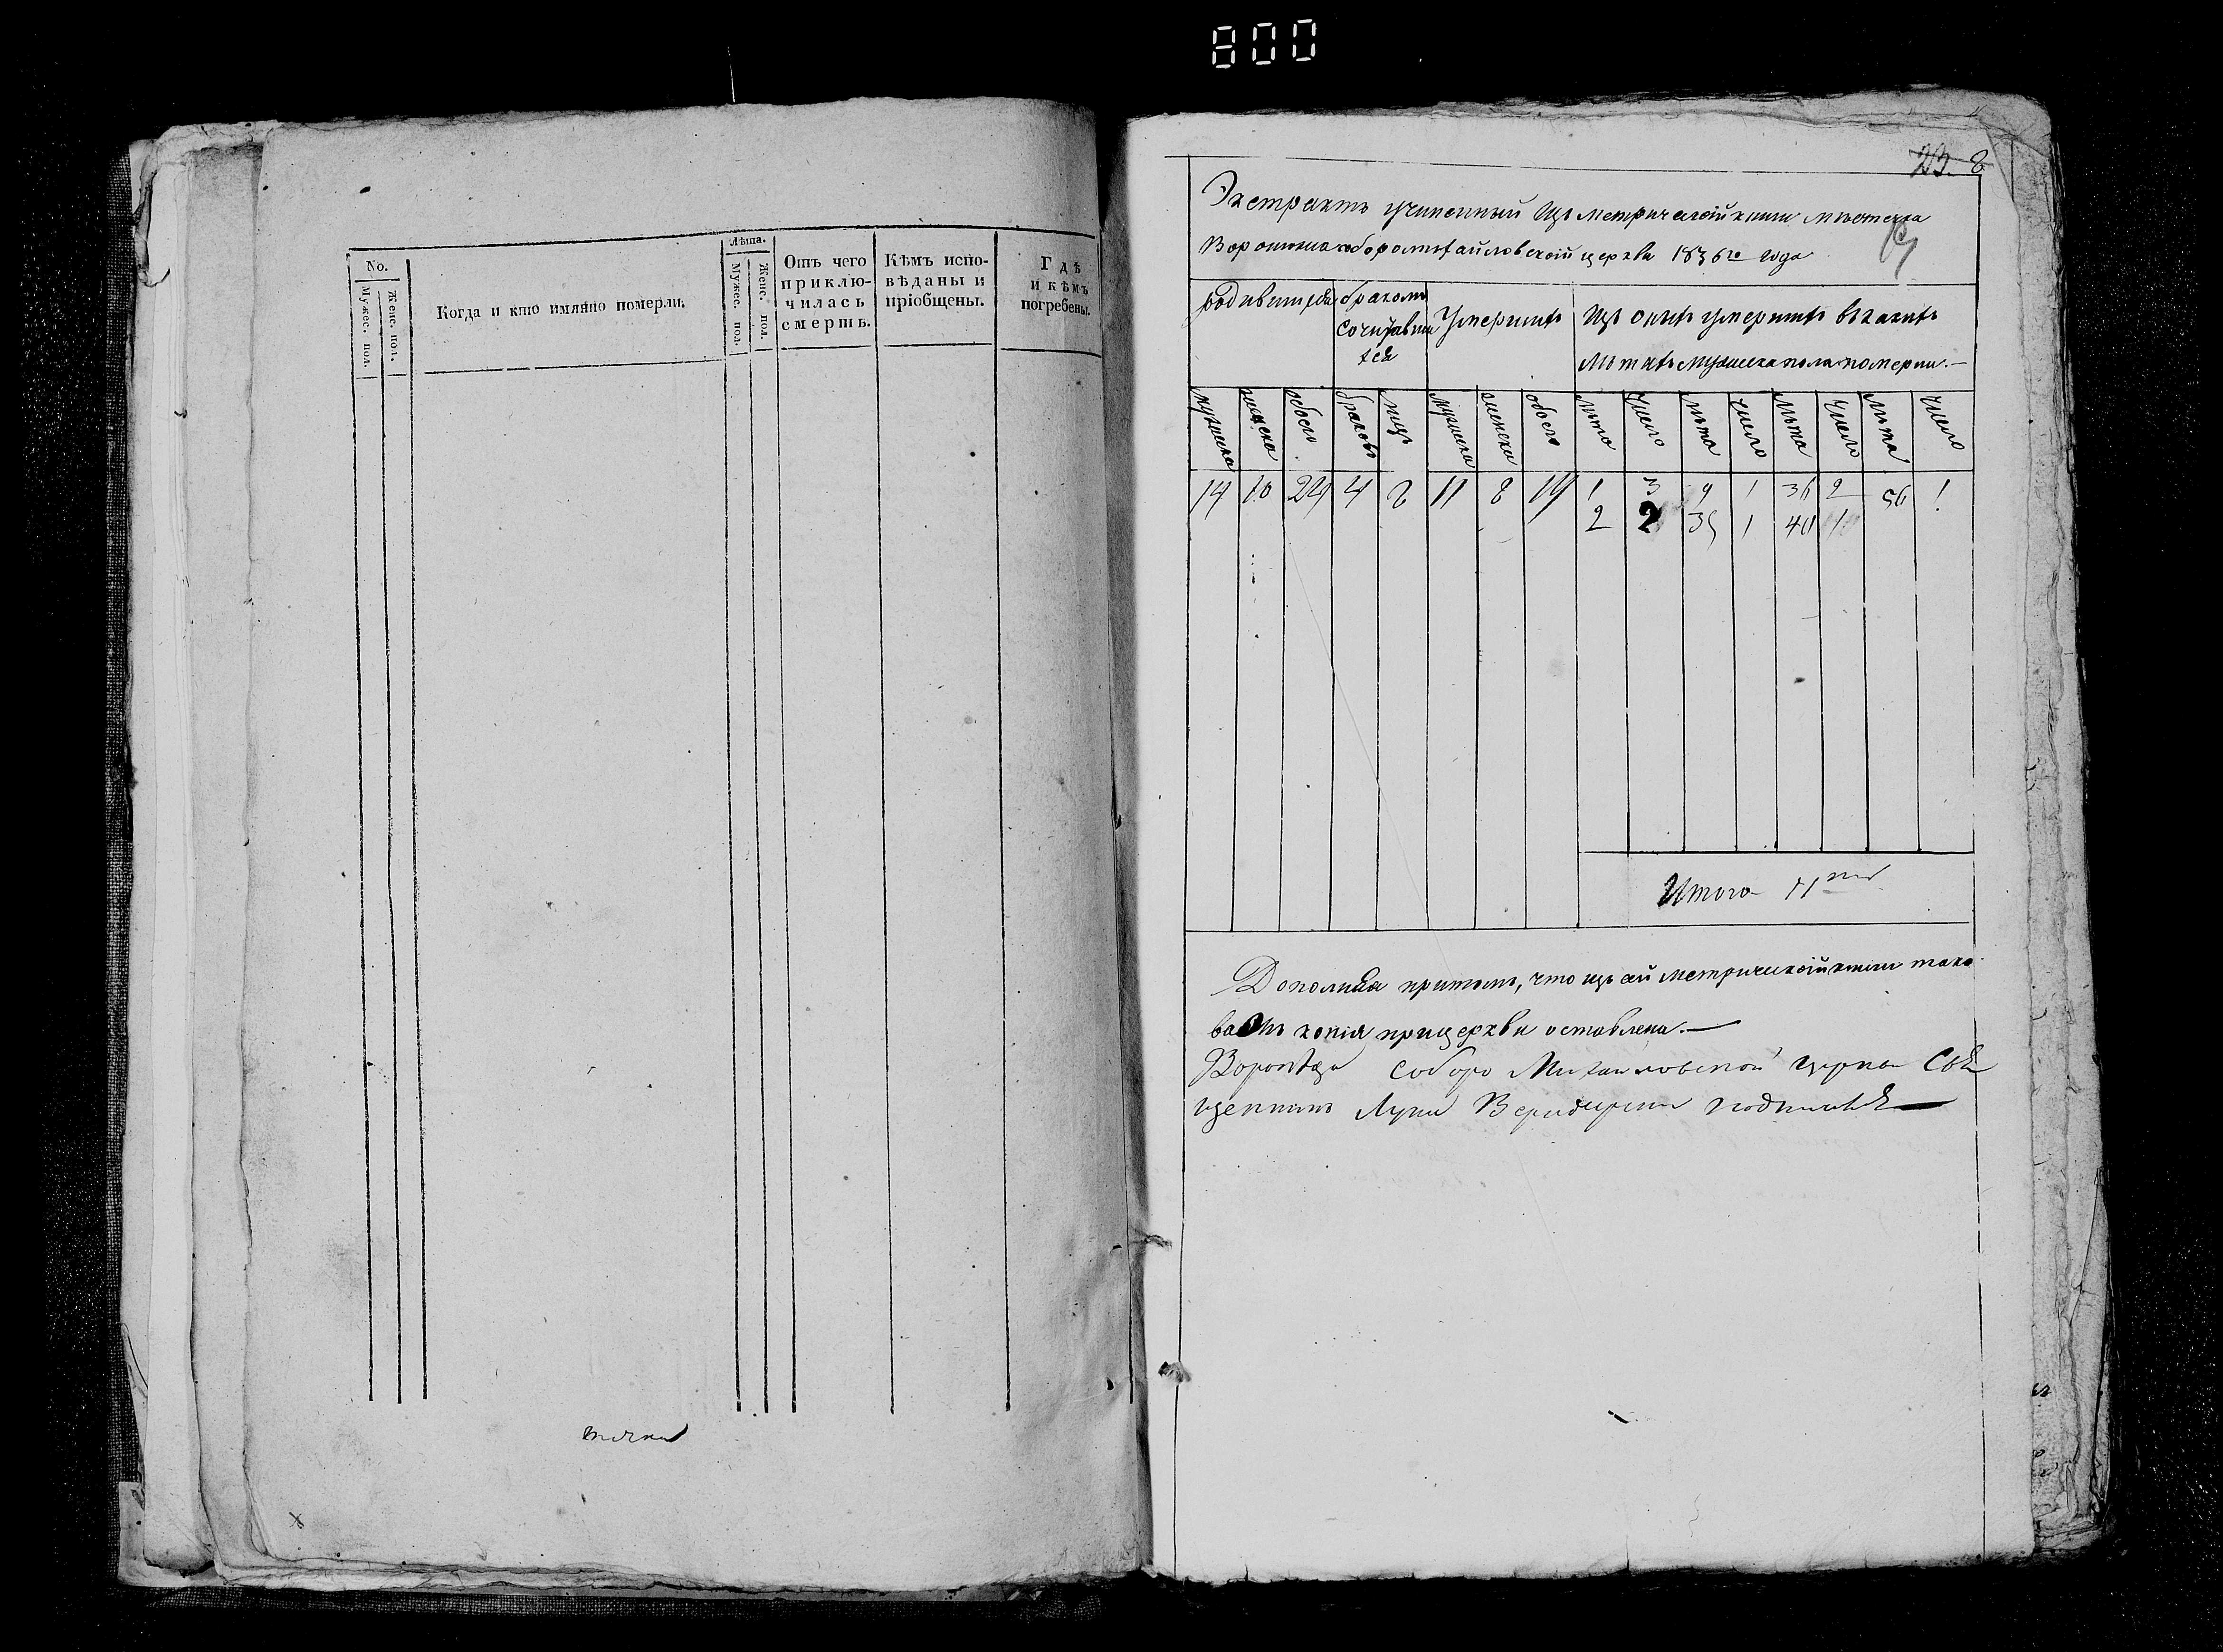 800
No.
Мужес. пол.
Женс. пол.
Когда и кто имянно померли.
Лѣта.
Мужес. пол.
Женс. пол.
Отъ чего
приклю-
чилась
смерть.
Кѣмъ испо-
вѣданы и
пріобщены.
Гдѣ
и кѣмъ
погребены.
23. 8
Экстрактъ учиненный изъ метрической книги мѣстечка
Воронежа соборомихайловской церкви 1836го года
родившихся
бракомъ
сочитавши
хся
Умершихъ
Изъ онихъ умершихъ въ какихъ
лѣтахъ мужеска пола померли.—
мужеска
женска
обоего
браковъ
лицъ
мужеска
женска
обоего
лѣта
число
лѣта
число
лѣта
число
лѣта
число
14 10 24 4 8 11 8 19 1 3 9 1 36 2 56 !
2 2 35 1 40 1
Итого 11
Дополняя притомъ, что изъ сей метрической книги тако
ва копія при церкви оставлена.—
Соборо Михайловской церкви Свя
щенникъ Лука подписався